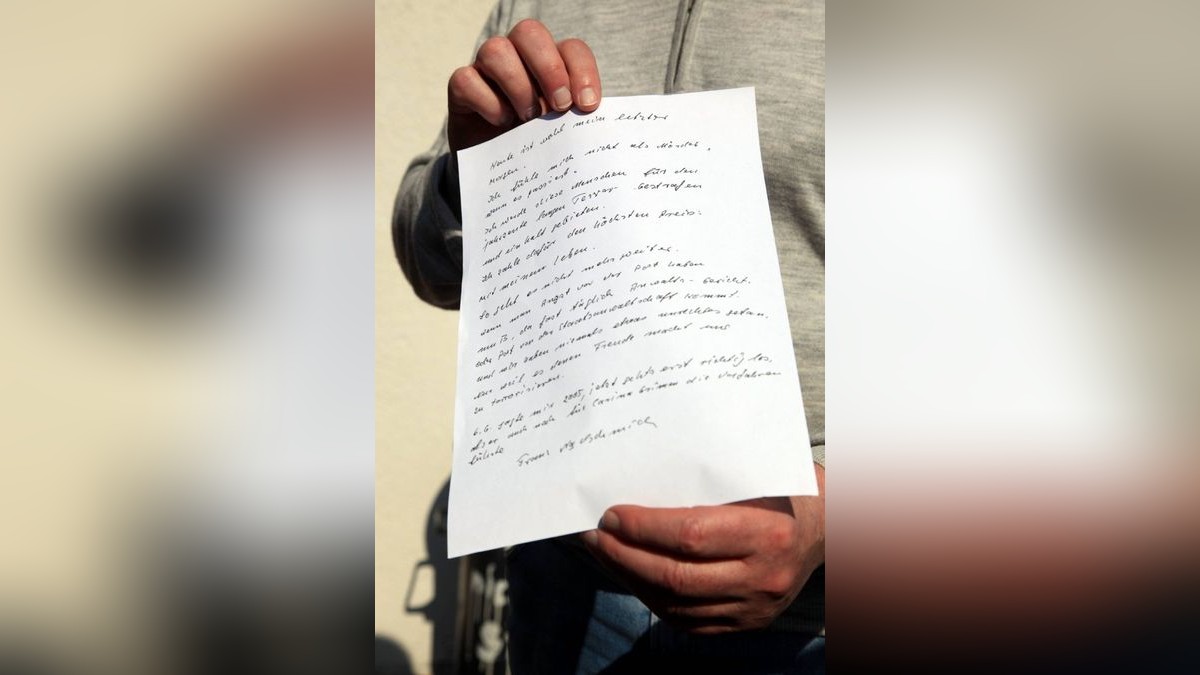 Heute ist wohl mein letzter
Morgen.
Ich fühle mich nicht als Mörder,
wenn es passiert.
Ich werde diese Menschen für den
jahrzente langen Terror bestrafen
und einhalt gebieten.
Ich zahle dafür den höchsten Preis:
Mit meinem Leben.
So geht es nicht mehr weiter.
wenn man Angst vor der Post haben
muß, da fast täglich Anwalts- Gericht.
oder Post von der Staatsanwaltschaft kommt.
und wir haben niemals etwas unrechtes getan.
Nur weil es denen Freude macht uns
zu terrorisieren.
sagte mir 2005, jetzt gehts erst richtig los,
als er auch noch für die Verfahren
führte